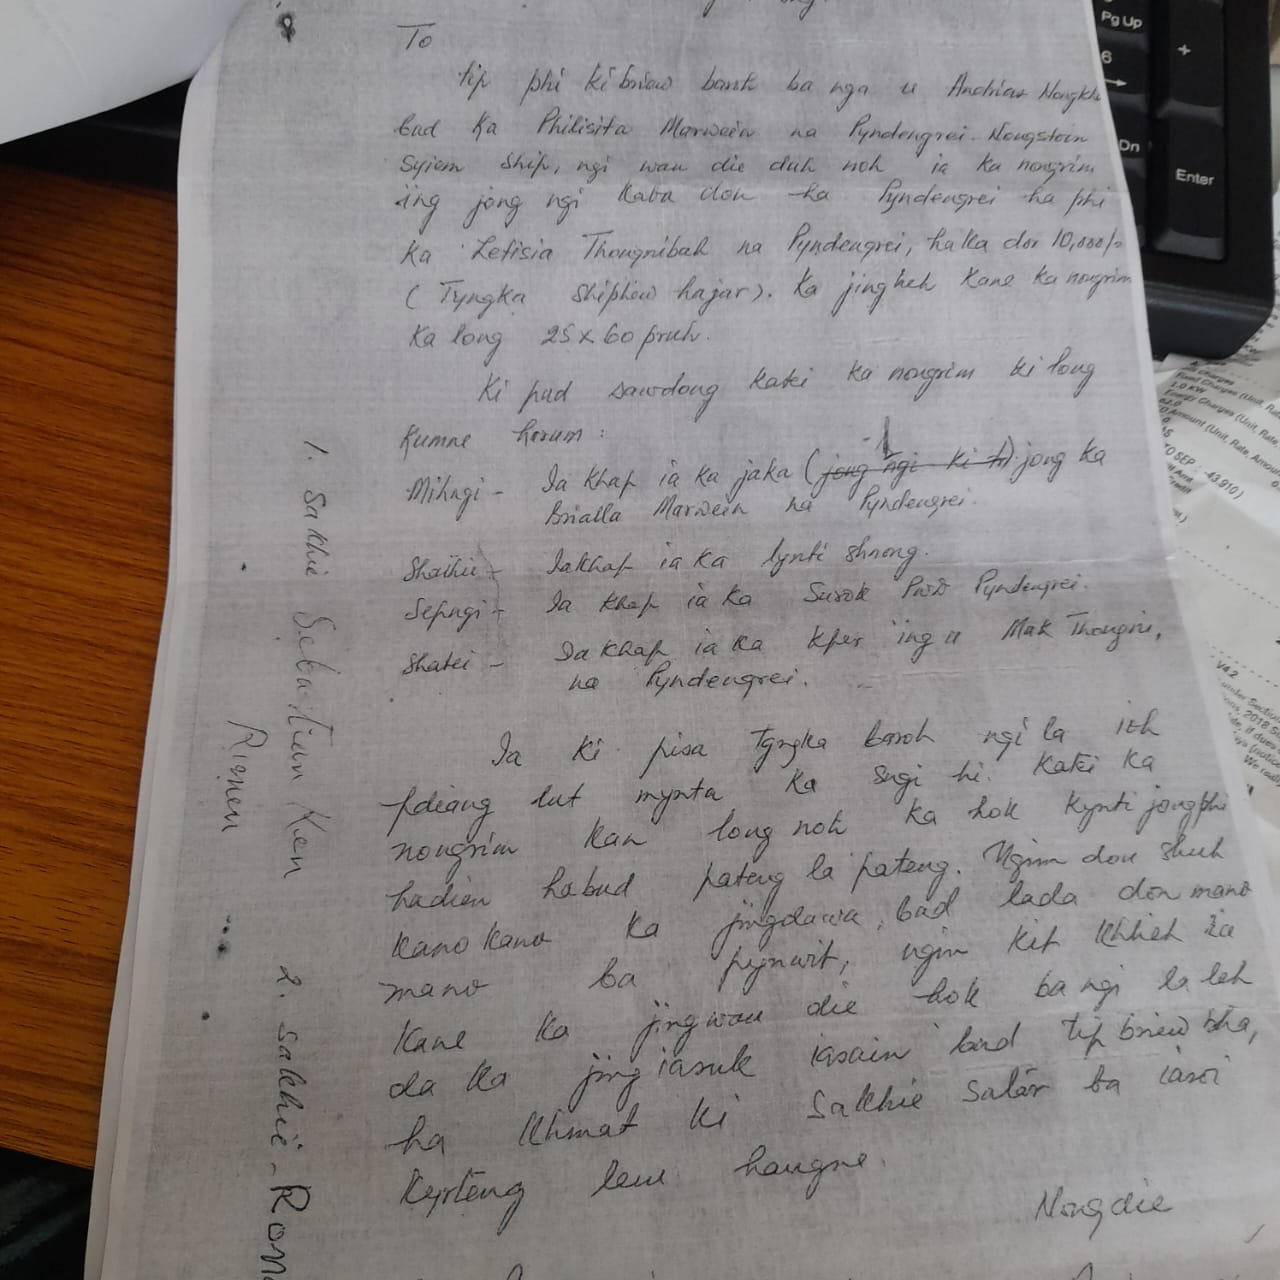 To
tip phi ki briew baroh ba nga u Andrias Nongkh
bad ka Philisita Marwein na Pyndengrei. Nongstoin
Syiem ship, ngi wan die duh noh ia ka nongrim
iing jong ngi kaba don ha Pyndengrei ha phi
ka Letisia Thougnibah na Pyndengrei, ha ka dor 10,000/-
( Tyngka shiphew hajar). Ka jingheh kane ka nongrim
ka long 25 x 60 phut.
Ki pud sawdong katei ka nongrim ki long
kumne harum :
Mihngi - Ia khap ia ka jaka (jong ngi ki ) jong ka
Brialla Marwein na Pyndengrei.
Shathie - Iakhap ia ka lynti shnong.
Sepngi - Ia khap ia ka Surok PWD Pyndengrei.
Shatei - Ia khap ia ka kper ing u Mak Thougni,
na Pyndengrei.
Ia ki pisa tyngka baroh ngi la ioh
pdiang lut mynta ka sngi hi. Katei ka
nongrim kan long noh ka hok kynti jong phi
hadien habud pateng la pateng. Ngim don shuh
kano kano ka jingdawa, bad lada don mano
mano ba pynwit, ngim kit khlieh ia
kane ka jingwan die hok ba ngi la leh
da ka jing iasuk iasain bad tip briew bha,
ha khmat ki sakhie salar ba iasoi
kyrteng lem hangne.
Nongdie
1. Sakhie Sebastian Ken
Rismen
2. Sakhie - Ron
Pg Up
+
6
Dn
Enter